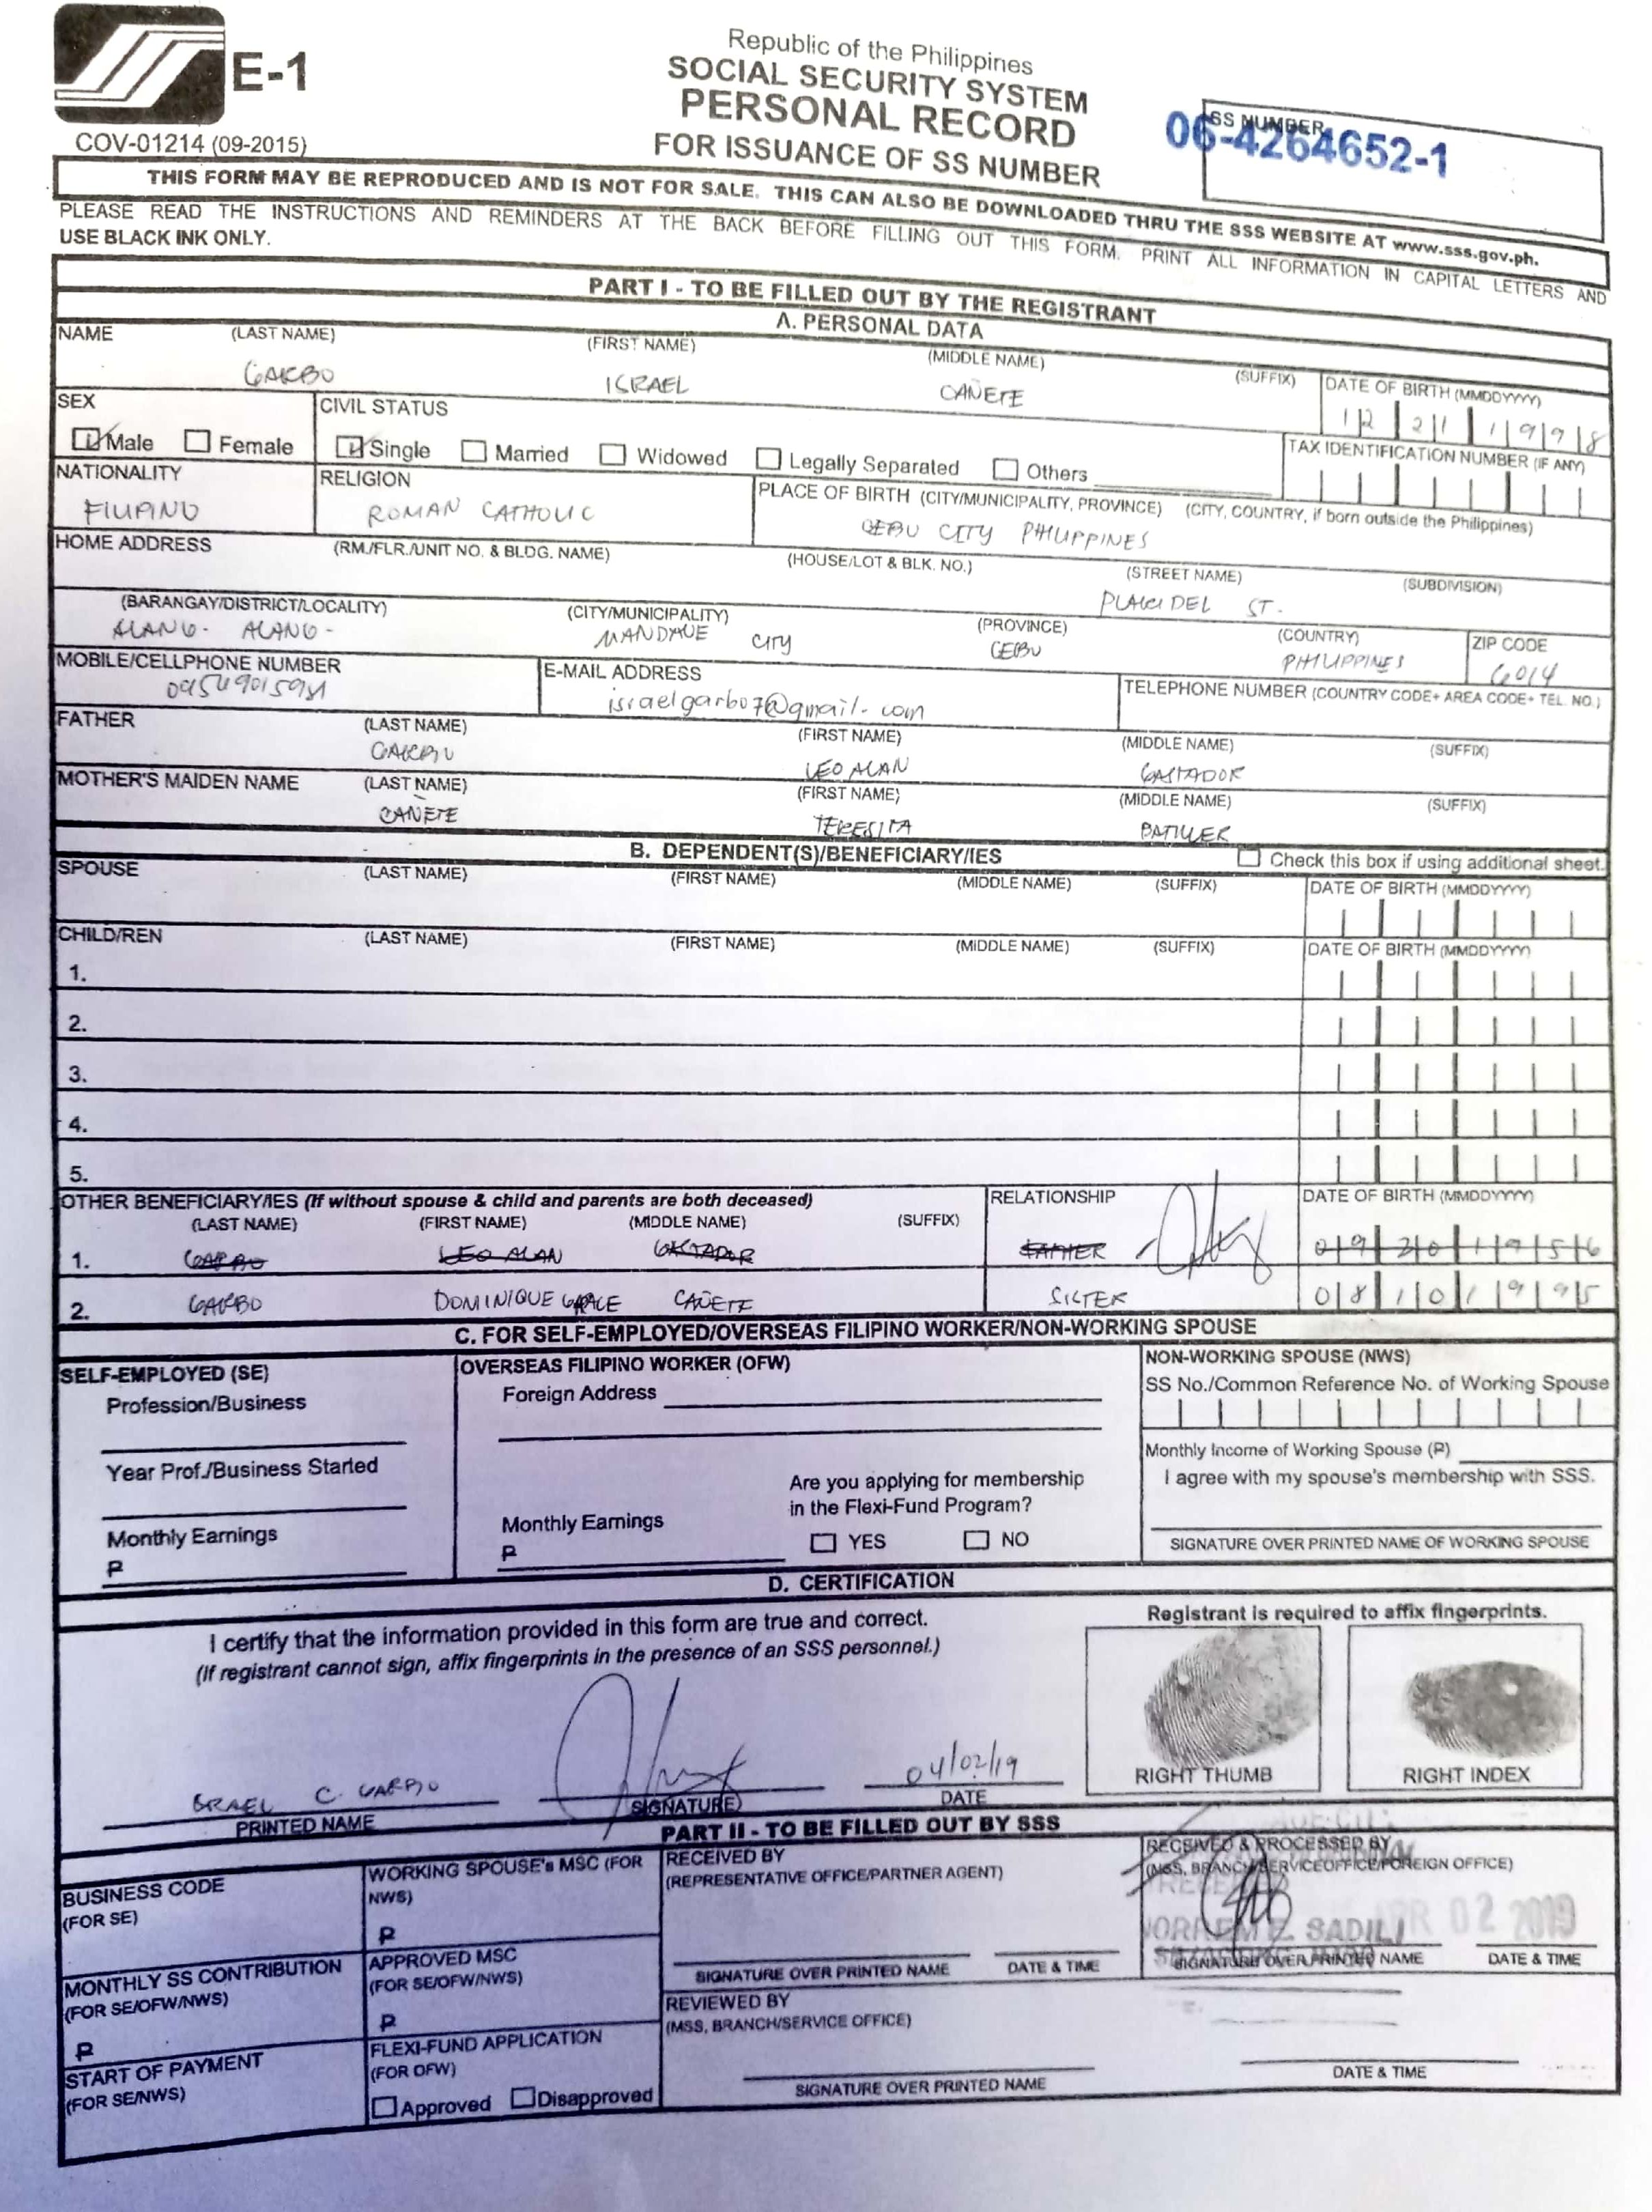 E-1
COV-01214 (09-2015)
Republic of the Philippines
SOCIAL SECURITY SYSTEM
PERSONAL RECORD
FOR ISSUANCE OF SS NUMBER
SS NUMBER
06-4264652-1
THIS FORM MAY BE REPRODUCED AND IS NOT FOR SALE. THIS CAN ALSO BE DOWNLOADED THRU THE SSS WEBSITE AT www.sss.gov.ph.
PLEASE READ THE INSTRUCTIONS AND REMINDERS AT THE BACK BEFORE FILLING OUT THIS FORM. PRINT ALL INFORMATION IN CAPITAL LETTERS AND
USE BLACK INK ONLY.
PART I - TO BE FILLED OUT BY THE REGISTRANT
A. PERSONAL DATA
NAME (LAST NAME) (FIRST NAME) (MIDDLE NAME) (SUFFIX) DATE OF BIRTH (MMDDYYYY)
GARBO ISRAEL CAÑETE 12 21 1998
SEX CIVIL STATUS TAX IDENTIFICATION NUMBER (IF ANY)
Male Female Single Married Widowed Legally Separated Others
NATIONALITY RELIGION PLACE OF BIRTH (CITY/MUNICIPALITY, PROVINCE) (CITY, COUNTRY, if born outside the Philippines)
FILIPINO ROMAN CATHOLIC CEBU CITY PHILIPPINES
HOME ADDRESS (RM./FLR./UNIT NO. & BLDG. NAME) (HOUSE/LOT & BLK. NO.) (STREET NAME) (SUBDIVISION)
PLACIDEL ST.
(BARANGAY/DISTRICT/LOCALITY) (CITY/MUNICIPALITY) (PROVINCE) (COUNTRY) ZIP CODE
ALANG-ALANG MANDAUE CITY CEBU PHILIPPINES 6014
MOBILE/CELLPHONE NUMBER E-MAIL ADDRESS TELEPHONE NUMBER (COUNTRY CODE+ AREA CODE+ TEL. NO.)
israelgarbo7@gmail.com
FATHER (LAST NAME) (FIRST NAME) (MIDDLE NAME) (SUFFIX)
GARBO LEO ALAN GASTADOR
MOTHER'S MAIDEN NAME (LAST NAME) (FIRST NAME) (MIDDLE NAME) (SUFFIX)
CAÑETE TERESITA BATILLER
B. DEPENDENT(S)/BENEFICIARY/IES Check this box if using additional sheet.
SPOUSE (LAST NAME) (FIRST NAME) (MIDDLE NAME) (SUFFIX) DATE OF BIRTH (MMDDYYYY)
CHILD/REN (LAST NAME) (FIRST NAME) (MIDDLE NAME) (SUFFIX) DATE OF BIRTH (MMDDYYYY)
1.
2.
3.
4.
5.
OTHER BENEFICIARY/IES (If without spouse & child and parents are both deceased) RELATIONSHIP DATE OF BIRTH (MMDDYYYY)
(LAST NAME) (FIRST NAME) (MIDDLE NAME) (SUFFIX)
1. GARBO LEO ALAN GASTADOR FATHER 09 20 1956
2. GARBO DOMINIQUE GRACE CAÑETE SISTER 08 10 1995
C. FOR SELF-EMPLOYED/OVERSEAS FILIPINO WORKER/NON-WORKING SPOUSE
SELF-EMPLOYED (SE) OVERSEAS FILIPINO WORKER (OFW) NON-WORKING SPOUSE (NWS)
Profession/Business Foreign Address SS No./Common Reference No. of Working Spouse
Year Prof./Business Started Monthly Income of Working Spouse (₱)
Are you applying for membership I agree with my spouse's membership with SSS.
in the Flexi-Fund Program?
Monthly Earnings Monthly Earnings YES NO SIGNATURE OVER PRINTED NAME OF WORKING SPOUSE
₱ ₱
D. CERTIFICATION
I certify that the information provided in this form are true and correct. Registrant is required to affix fingerprints.
(If registrant cannot sign, affix fingerprints in the presence of an SSS personnel.)
ISRAEL C. GARBO 04/02/19
PRINTED NAME SIGNATURE DATE RIGHT THUMB RIGHT INDEX
PART II - TO BE FILLED OUT BY SSS
BUSINESS CODE WORKING SPOUSE's MSC (FOR RECEIVED BY RECEIVED & PROCESSED BY
(FOR SE) NWS) (REPRESENTATIVE OFFICE/PARTNER AGENT) (MSS, BRANCH/SERVICE OFFICE/FOREIGN OFFICE)
₱ SADILI APR 02 2019
MONTHLY SS CONTRIBUTION APPROVED MSC SIGNATURE OVER PRINTED NAME DATE & TIME SIGNATURE OVER PRINTED NAME DATE & TIME
(FOR SE/OFW/NWS) (FOR SE/OFW/NWS) REVIEWED BY
₱ ₱ (MSS, BRANCH/SERVICE OFFICE)
START OF PAYMENT FLEXI-FUND APPLICATION
(FOR SE/NWS) (FOR OFW)
Approved Disapproved SIGNATURE OVER PRINTED NAME DATE & TIME